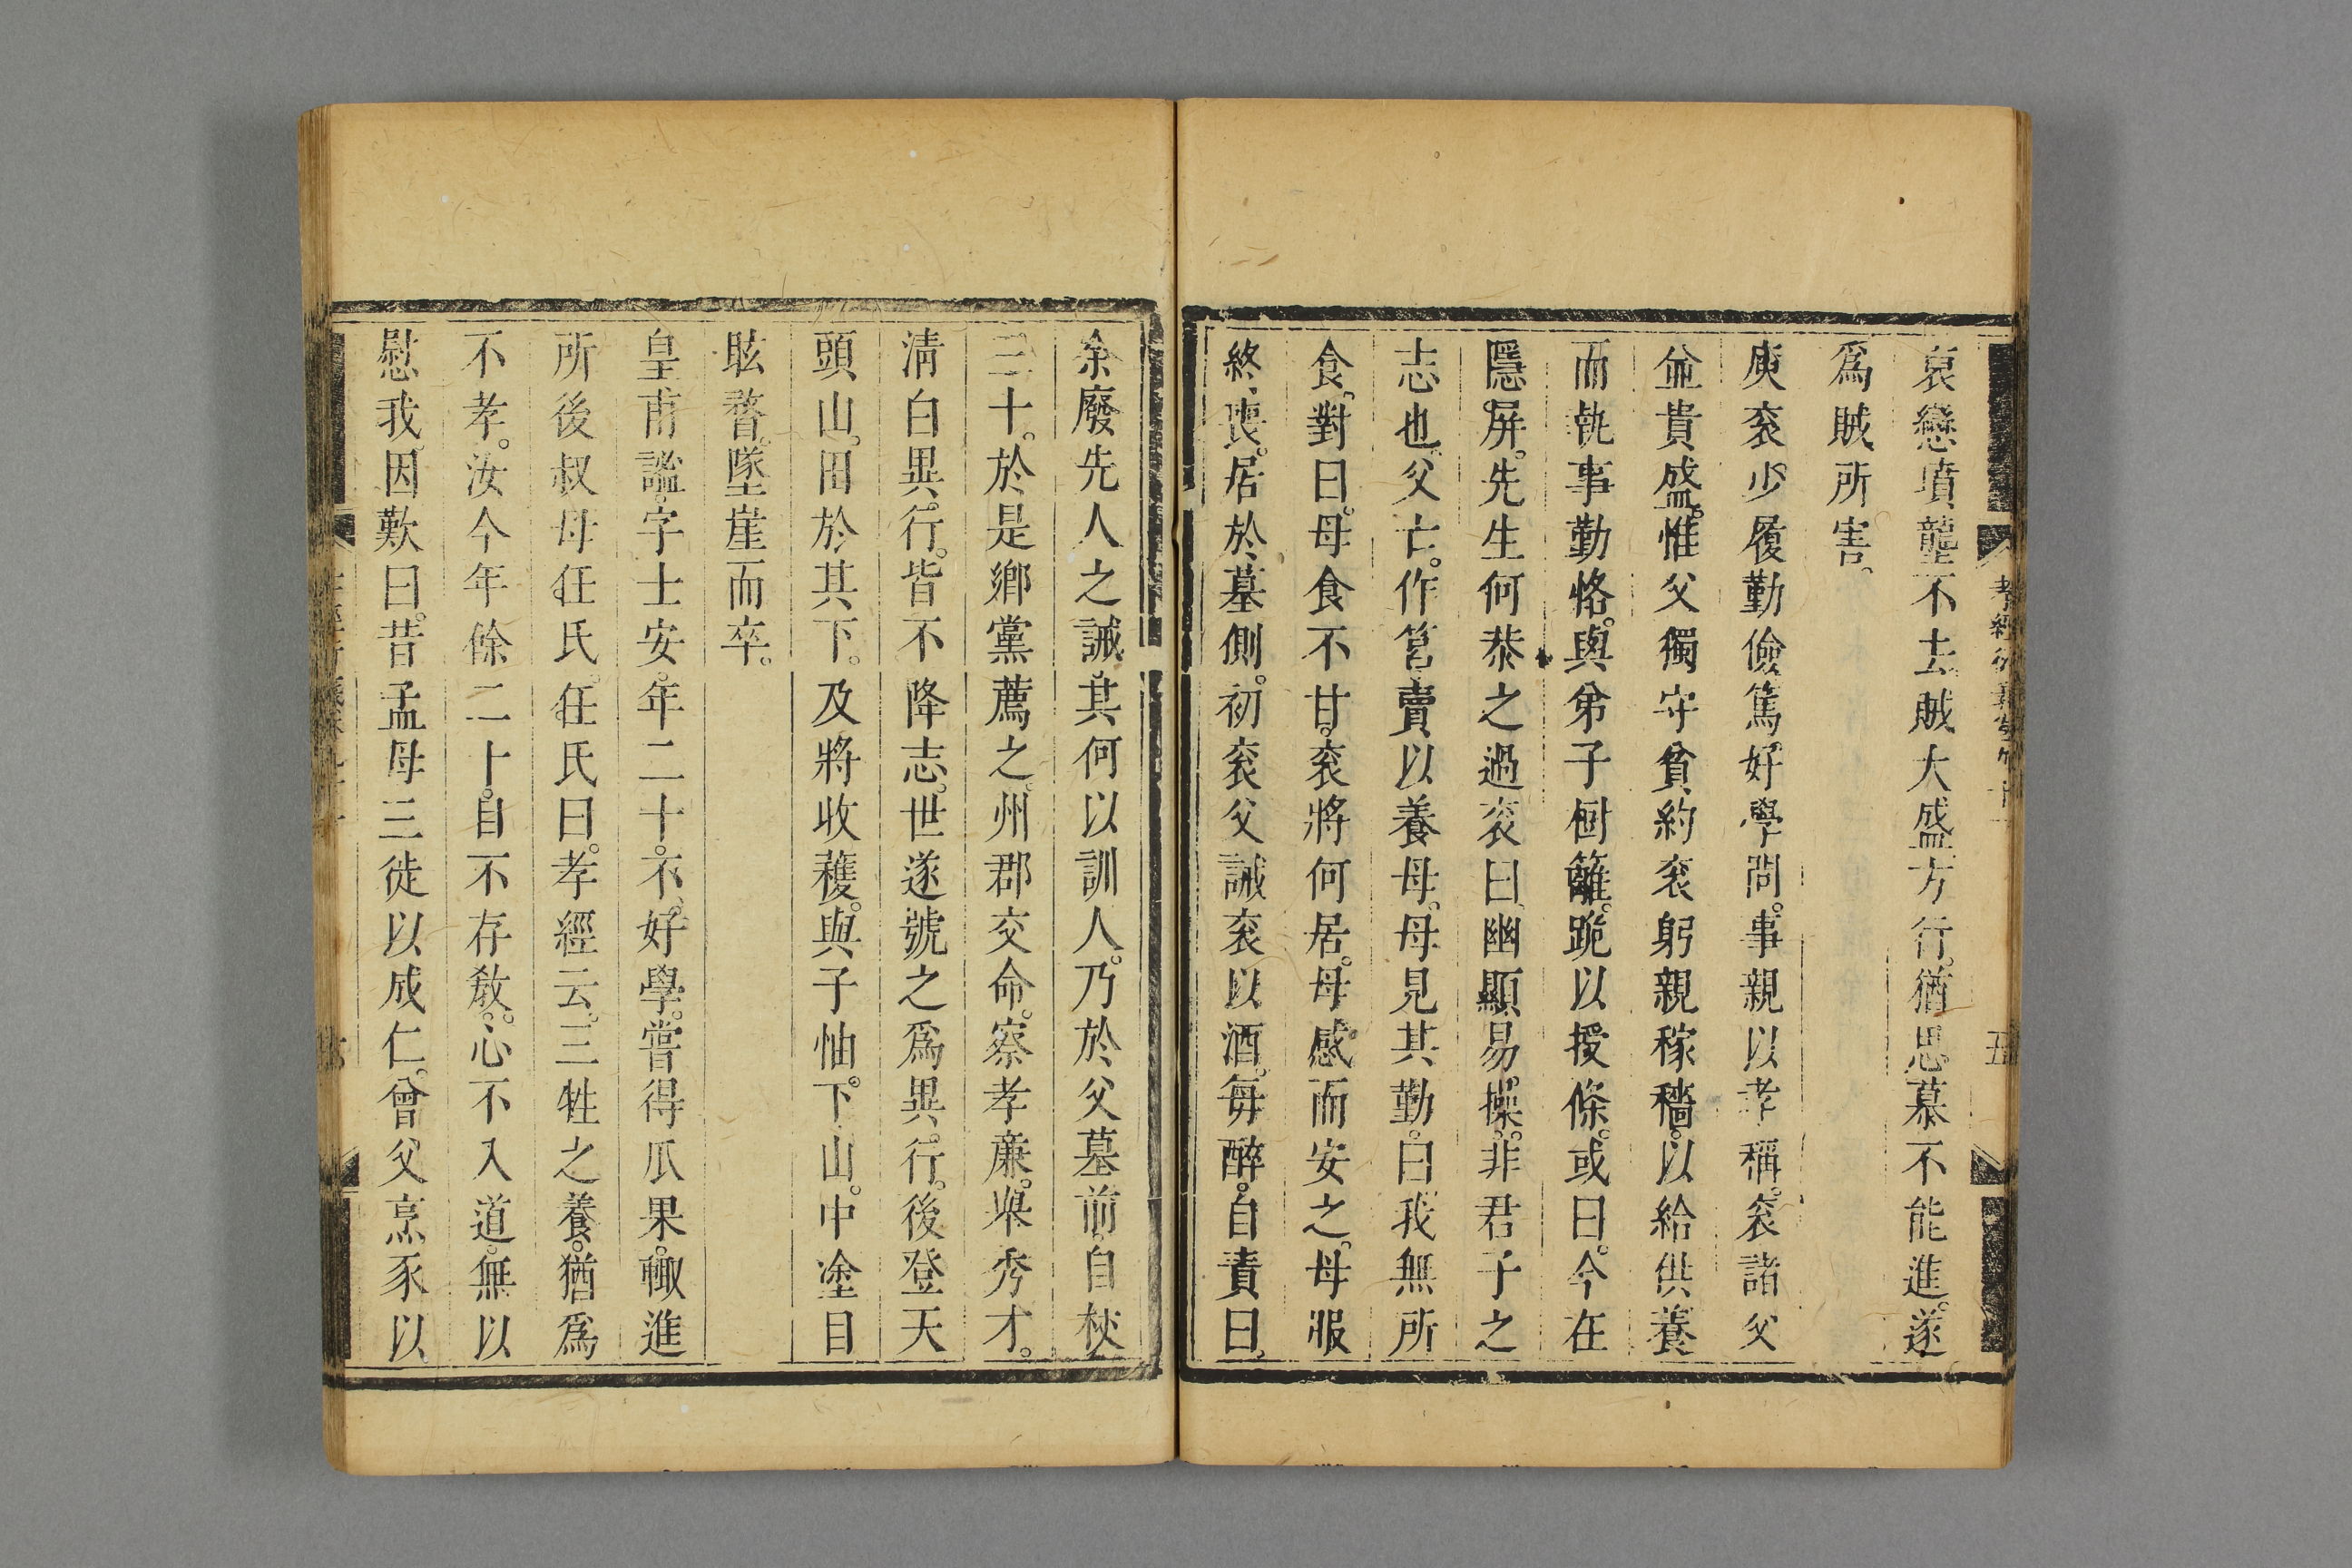 哀戀墳壟不去賊大盛方行。猶思慕不能進。遂
爲賊所害。
庾袞少履勤儉篤好學問。事親以孝稱。袞諸父
並貴盛。惟父獨守貧約袞躬親稼穡。以給供養
而執事勤恪。與弟子樹籬。跪以授條。或曰。今在
隱屏。先生何恭之過袞曰幽顯易操。非君子之
志也父亡。作筥賣以養母。母見其勤。曰我無所
食。對曰。母食不甘。袞將何居。母感而安之。母服
終喪。居於墓側。初袞父誡袞以酒。每醉。自責曰。
余廢先人之誡。其何以訓人。乃於父墓前。自杖
三十。於是鄉黨薦之。州郡交命。察孝廉。舉秀才。
淸白異行。皆不降志。世遂號之爲異行。後登天
頭山。田於其下。及將收穫。與子怞下山。中塗目
眩瞀。墜崖而卒。
皇甫謐。字士安。年二十。不好學。嘗得瓜果。輒進
所後叔母任氏。任氏曰。孝經云。三牲之養。猶爲
不孝。汝今年餘二十。自不存敎。心不入道。無以
慰我。因歎曰。昔孟母三徙以成仁。曾父烹豕以